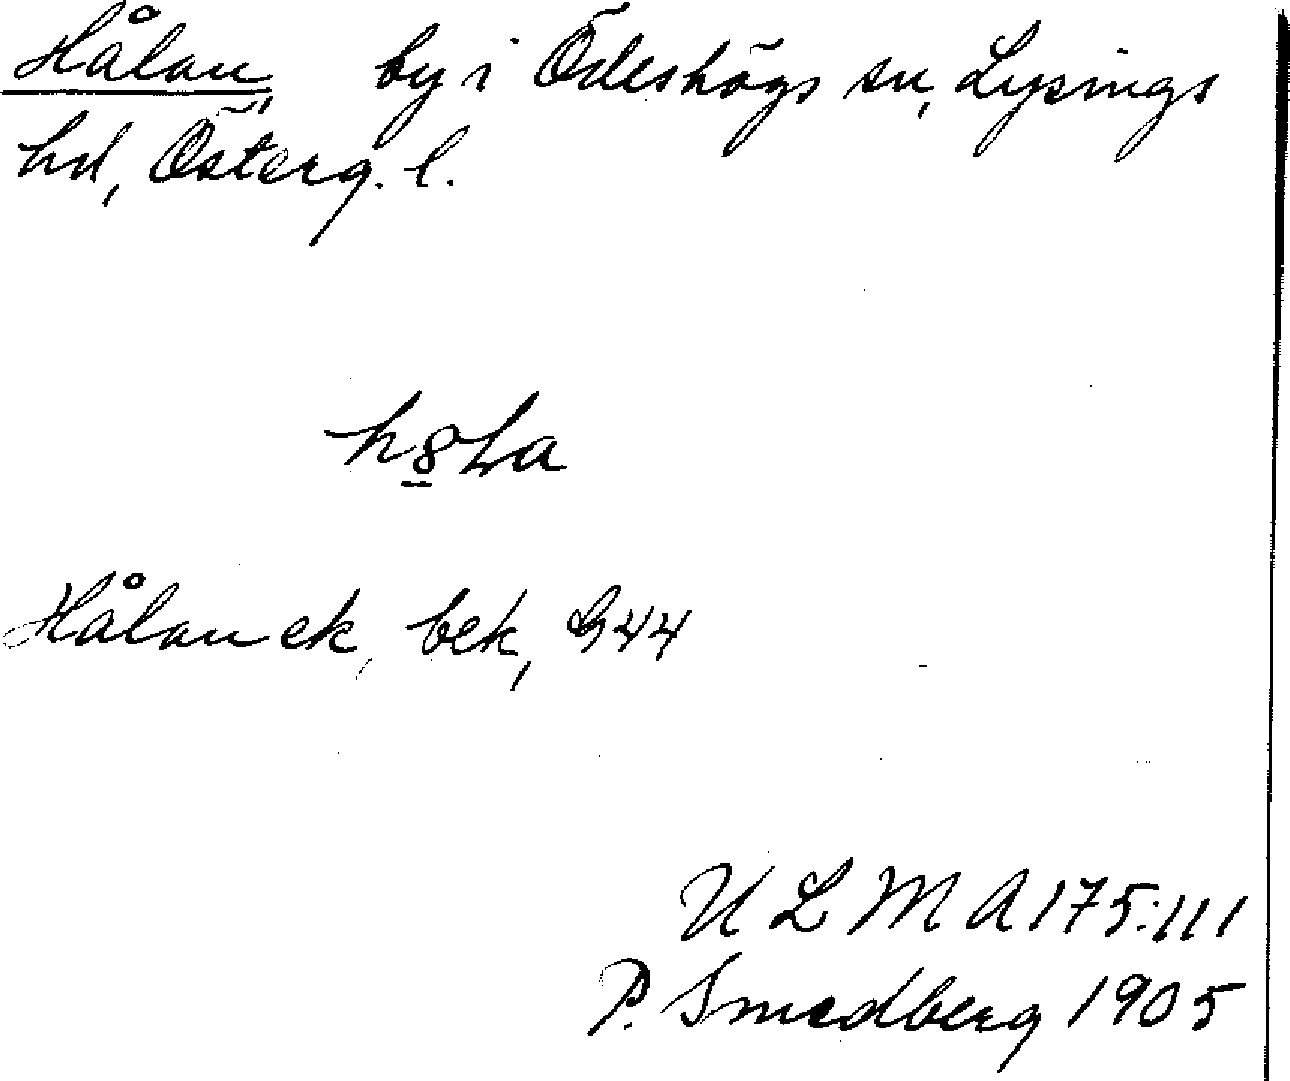 Hålan, by i Ödeshögs sn, Lysings
hd, Österg. l.
Hålan ek, bek, G44
U L M A 175:111
P. Smedberg 1905